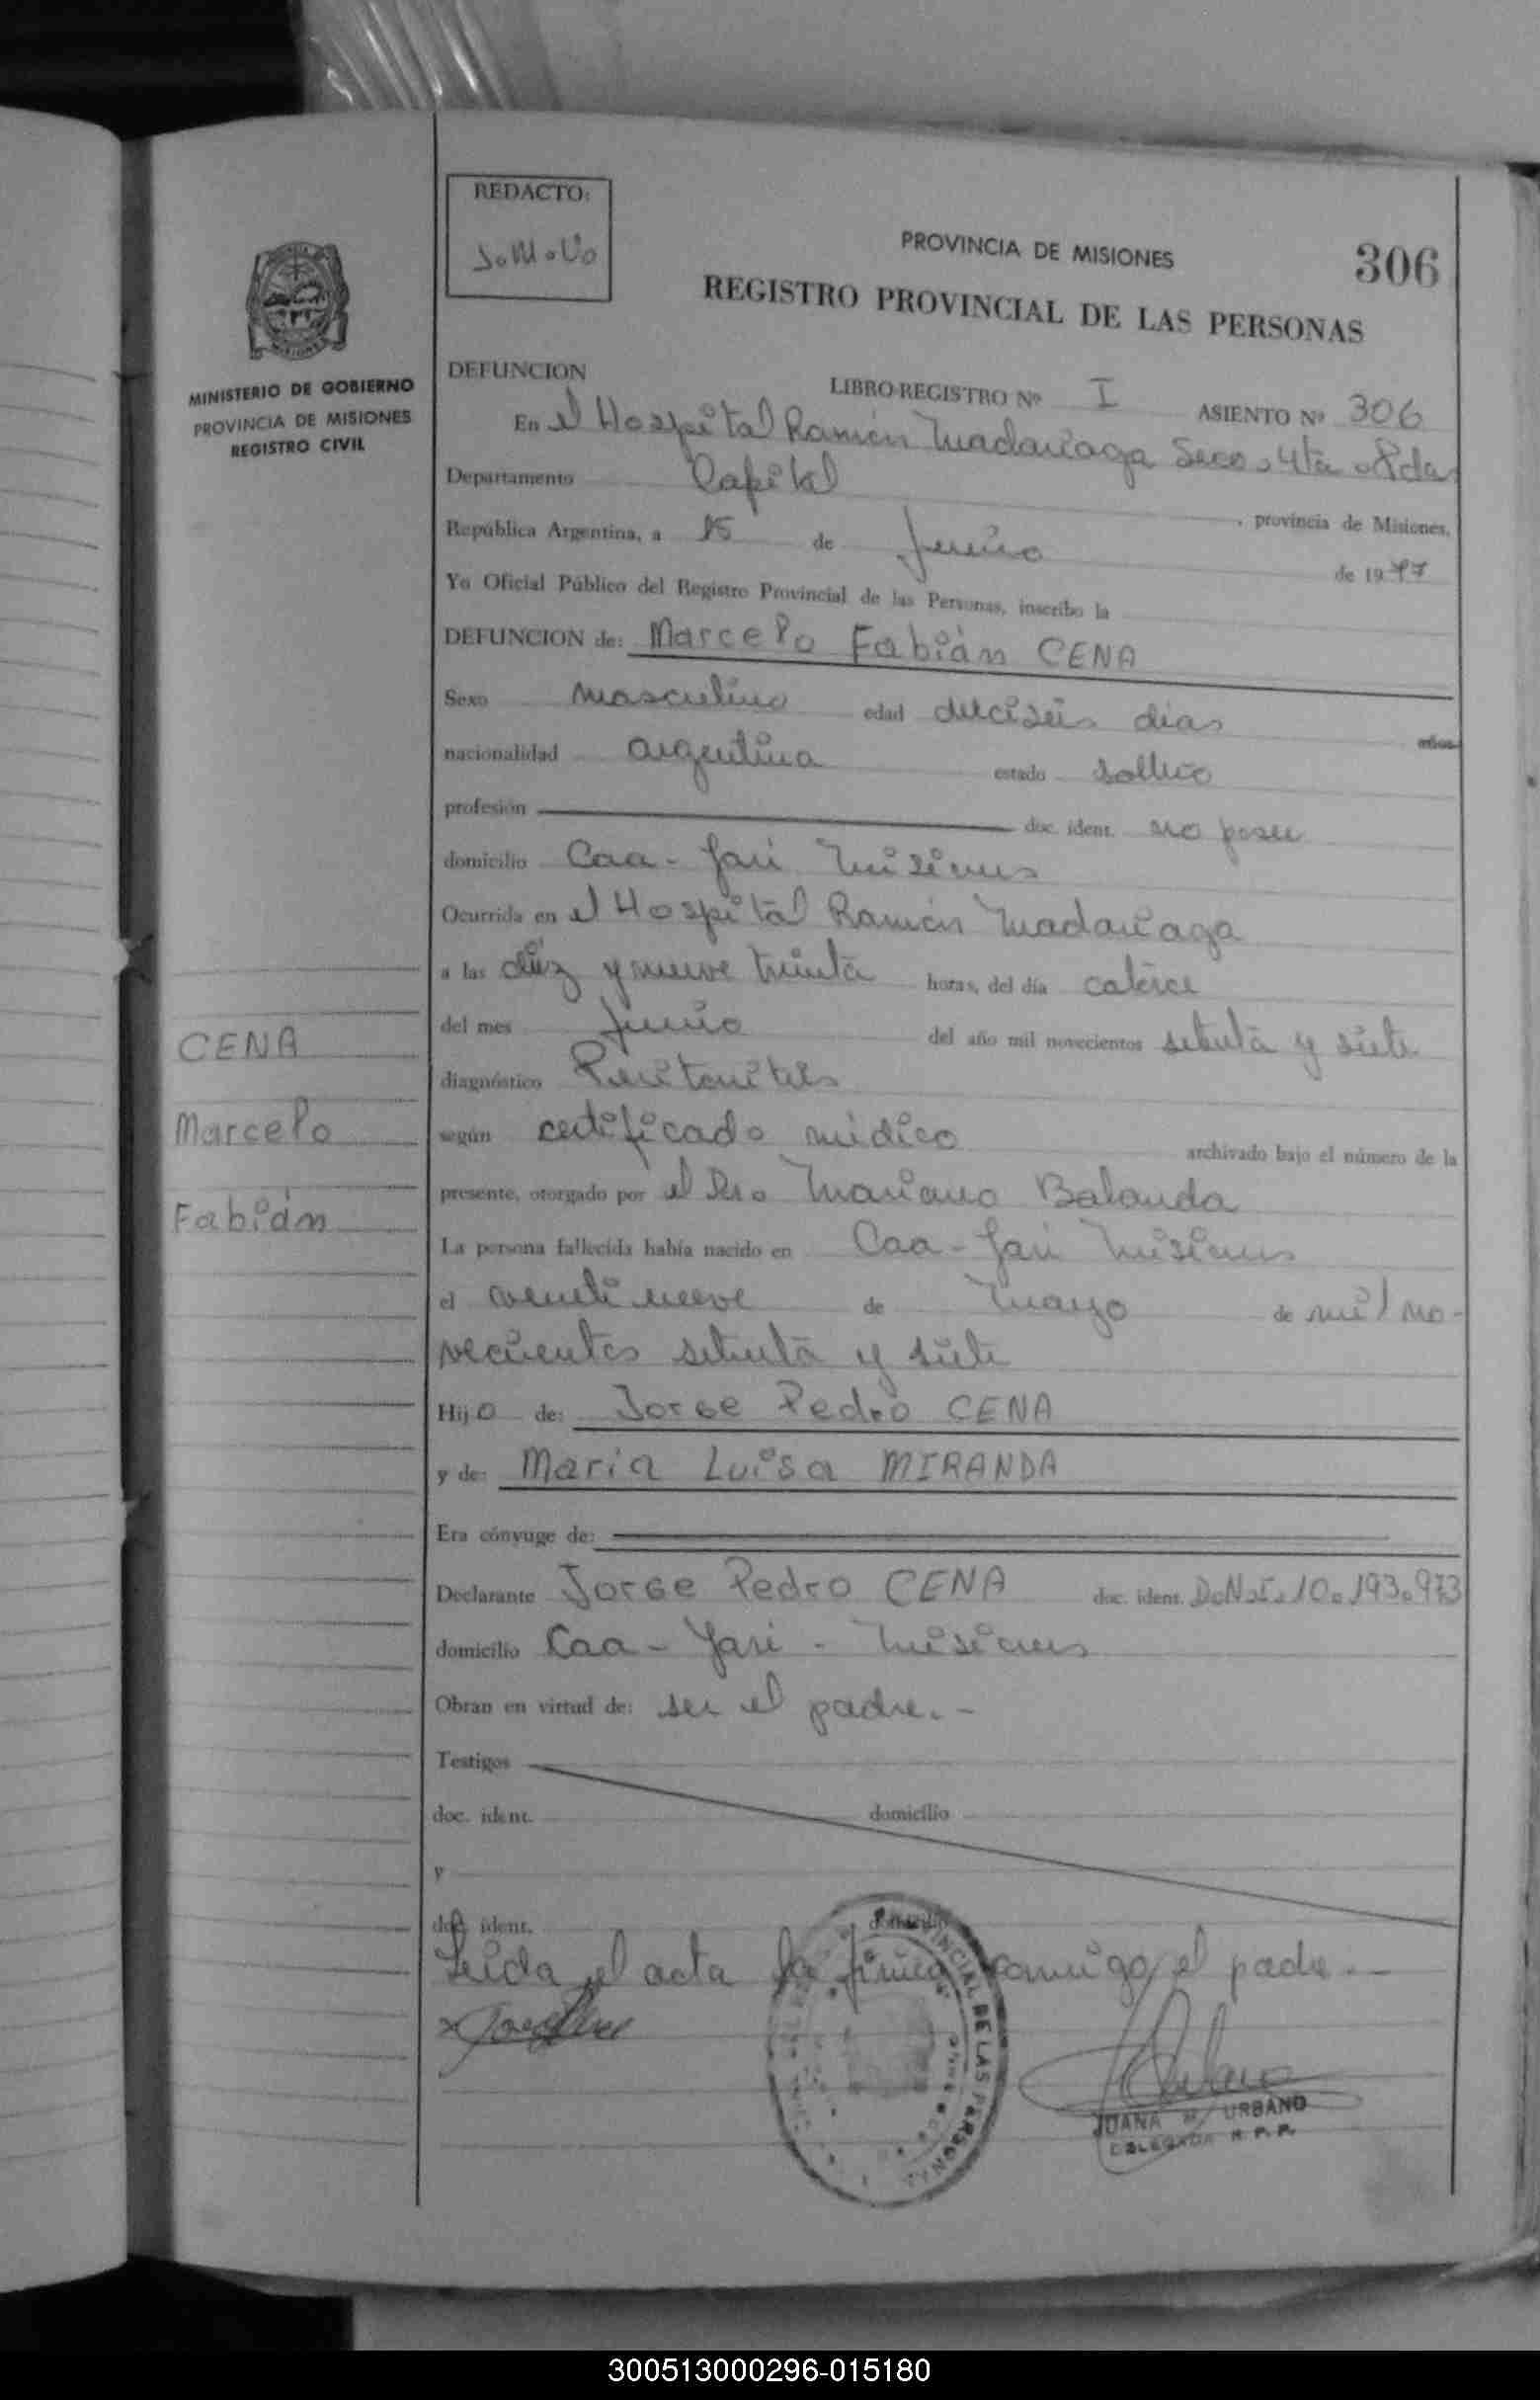 REDACTO:
J.M.U.
PROVINCIA DE MISIONES
306
REGISTRO PROVINCIAL DE LAS PERSONAS
MINISTERIO DE GOBIERNO
PROVINCIA DE MISIONES
REGISTRO CIVIL
DEFUNCION
LIBRO-REGISTRO Nº I ASIENTO Nº 306
En el Hospital Ramón Madariaga Secc. 4ta Pdas
Departamento Capital , provincia de Misiones,
República Argentina, a 15 de junio de 1977
Yo Oficial Público del Registro Provincial de las Personas, inscribo la
DEFUNCION de: Marcelo Fabián CENA
Sexo masculino edad dieciseis dias años
nacionalidad argentina estado soltero
profesión doc. ident. no posee
domicilio Caa-Yarí Misiones
Ocurrida en el Hospital Ramón Madariaga
a las diez y nueve treinta horas, del día catorce
del mes junio del año mil novecientos setenta y siete
diagnóstico Peritonitis
según certificado médico archivado bajo el número de la
presente, otorgado por el Dr. Mariano Balanda
La persona fallecida había nacido en Caa-Yarí Misiones
el veintinueve de Mayo de mil no-
vecientos setenta y siete
Hijo de: Jorge Pedro CENA
y de: Maria Luisa MIRANDA
Era cónyuge de:
Declarante Jorge Pedro CENA doc. ident. D.N.I. 10.193.973
domicilio Caa-Yarí - Misiones
Obran en virtud de: ser el padre.-
Testigos
doc. ident. domicilio
y
doc. ident. domicilio
Leida el acta la firma conmigo el padre.-
CENA
Marcelo
Fabián
PROVINCIAL DE LAS PERSONAS
JUANA M. URBANO
DELEGADA R. P. P.
300513000296-015180